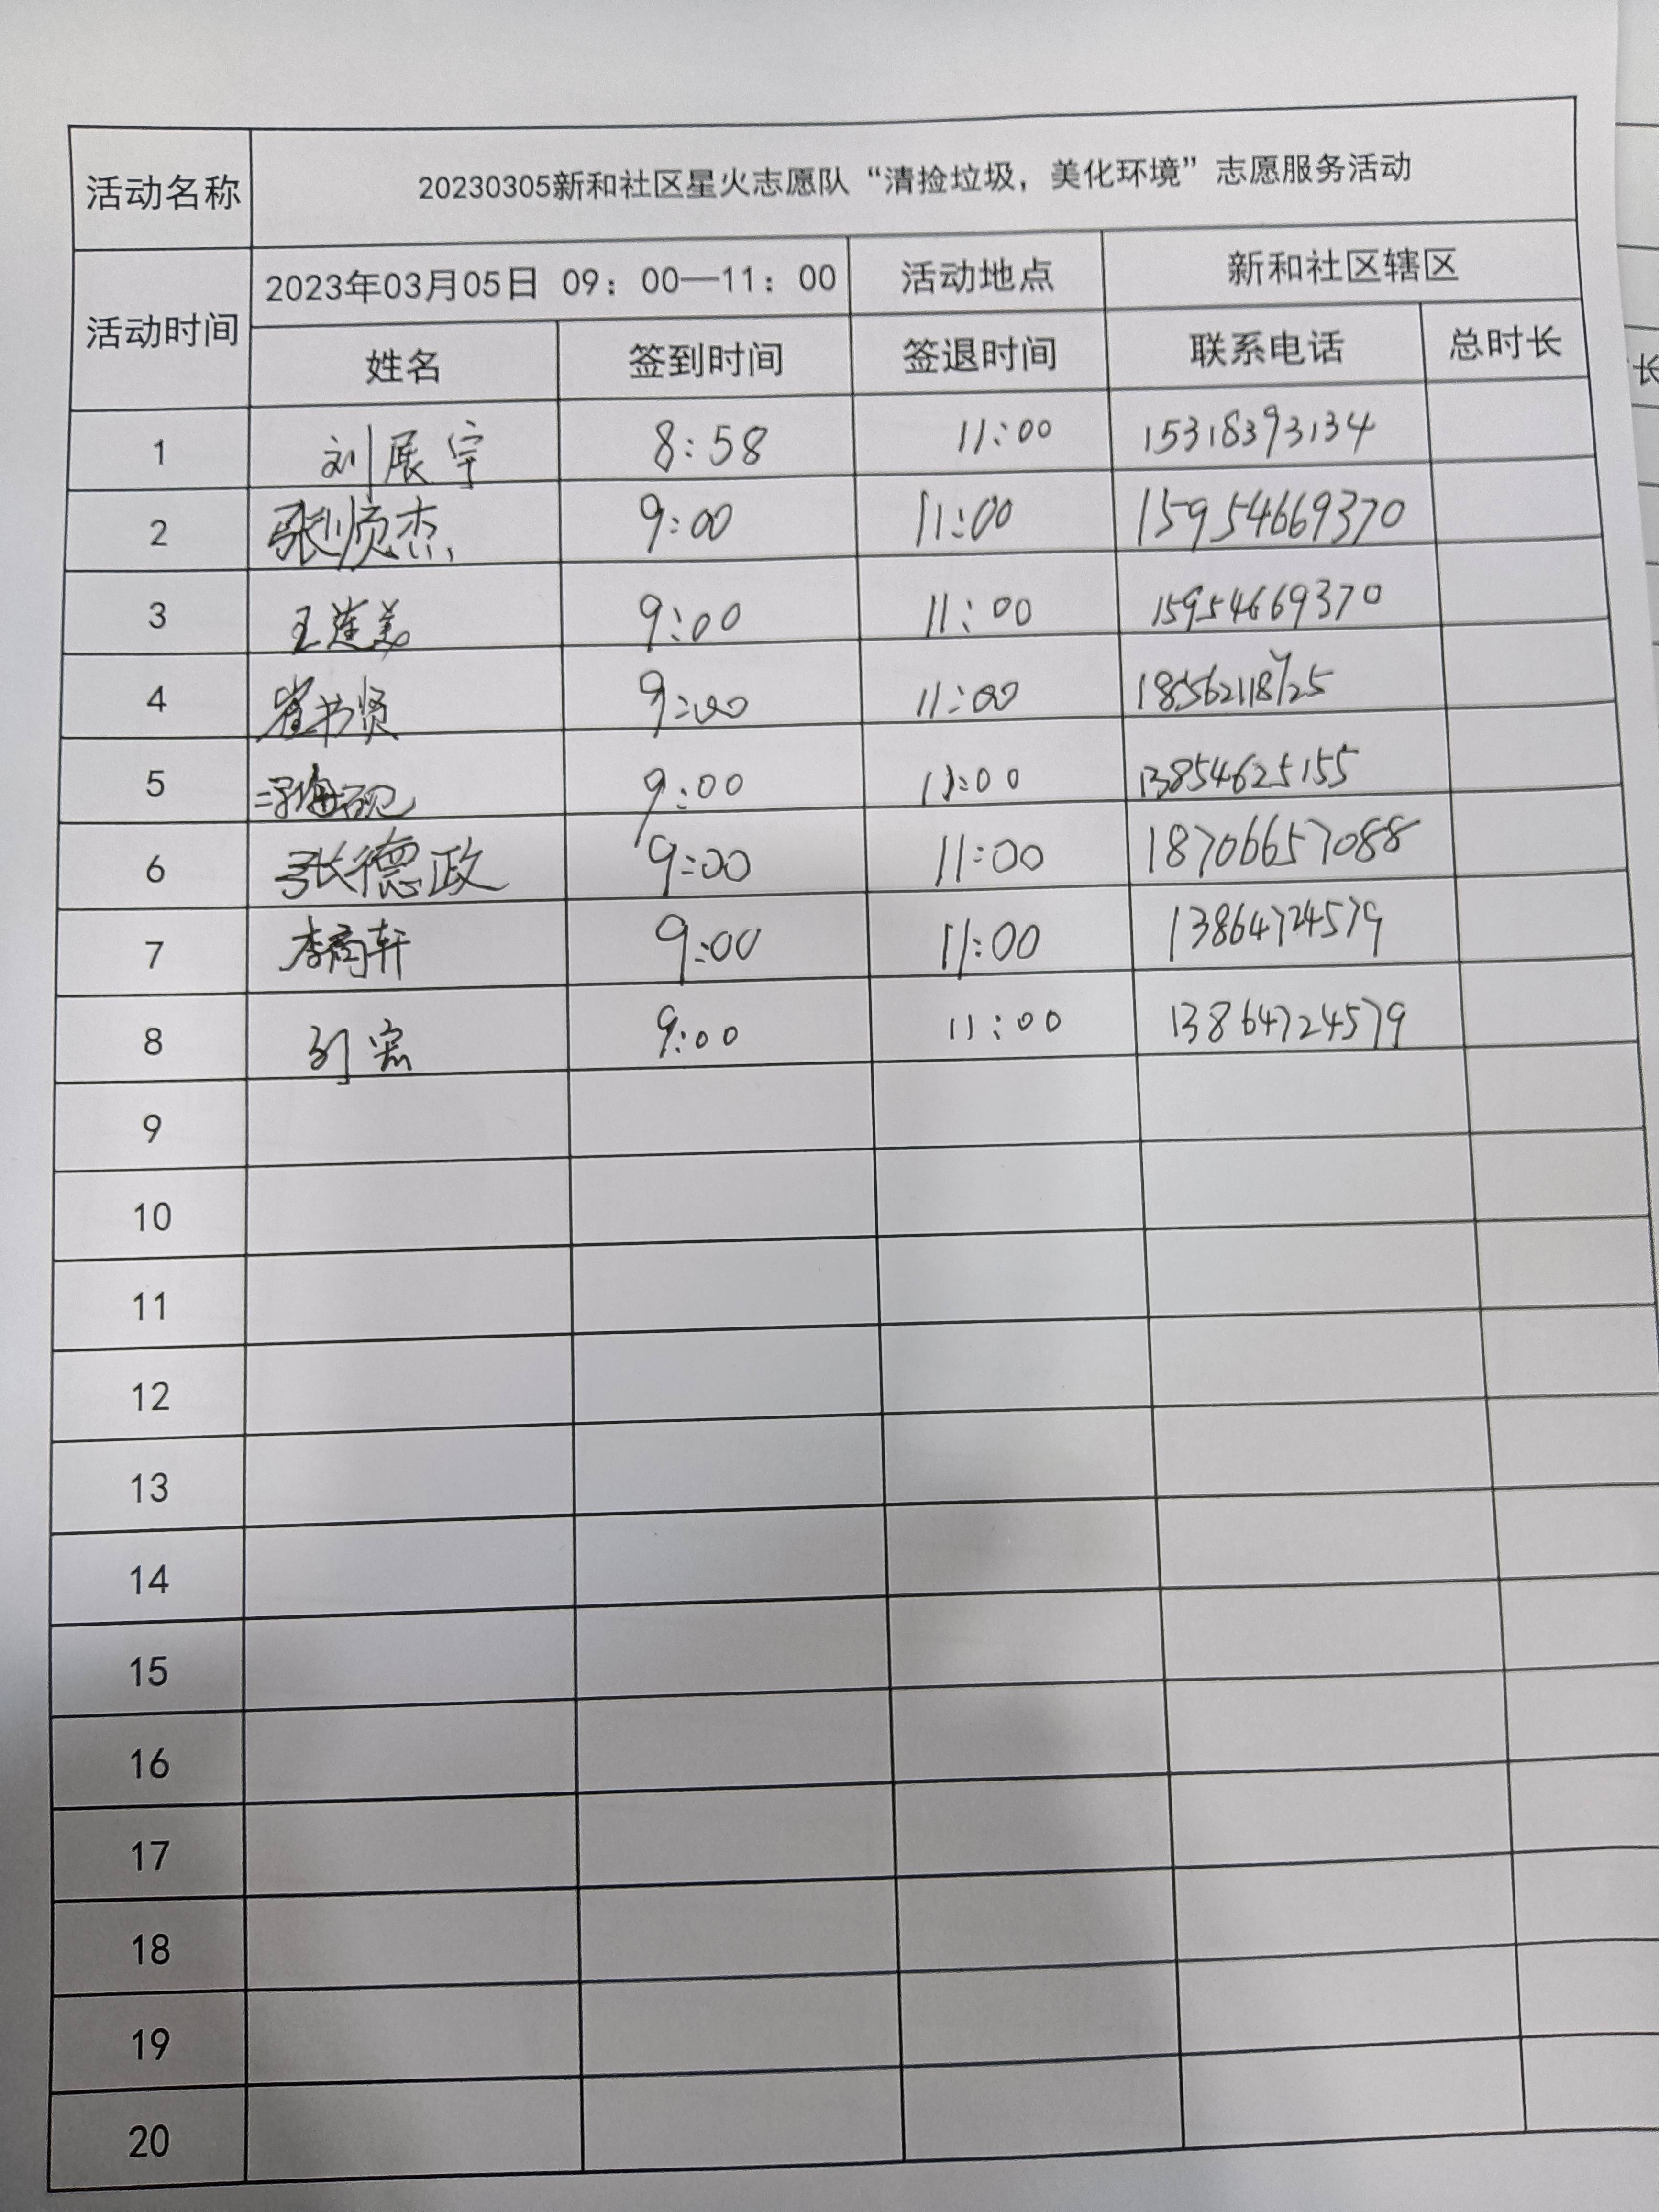 活动名称 20230305新和社区星火志愿队“清捡垃圾，美化环境”志愿服务活动
活动时间 2023年03月05日 09：00—11：00 活动地点 新和社区辖区
姓名 签到时间 签退时间 联系电话 总时长
长
1 刘展宇 8:58 11:00 15318393134
2 张顺杰 9:00 11:00 15954669370
3 王莲美 9:00 11:00 15954669370
4 崔书贤 9:00 11:00
5 9:00 11:00 13854625155
6 张德政 9:00 11:00 18706657088
7 李商轩 9:00 11:00 13864724579
8 9:00 11:00 13864724579
9
10
11
12
13
14
15
16
17
18
19
20